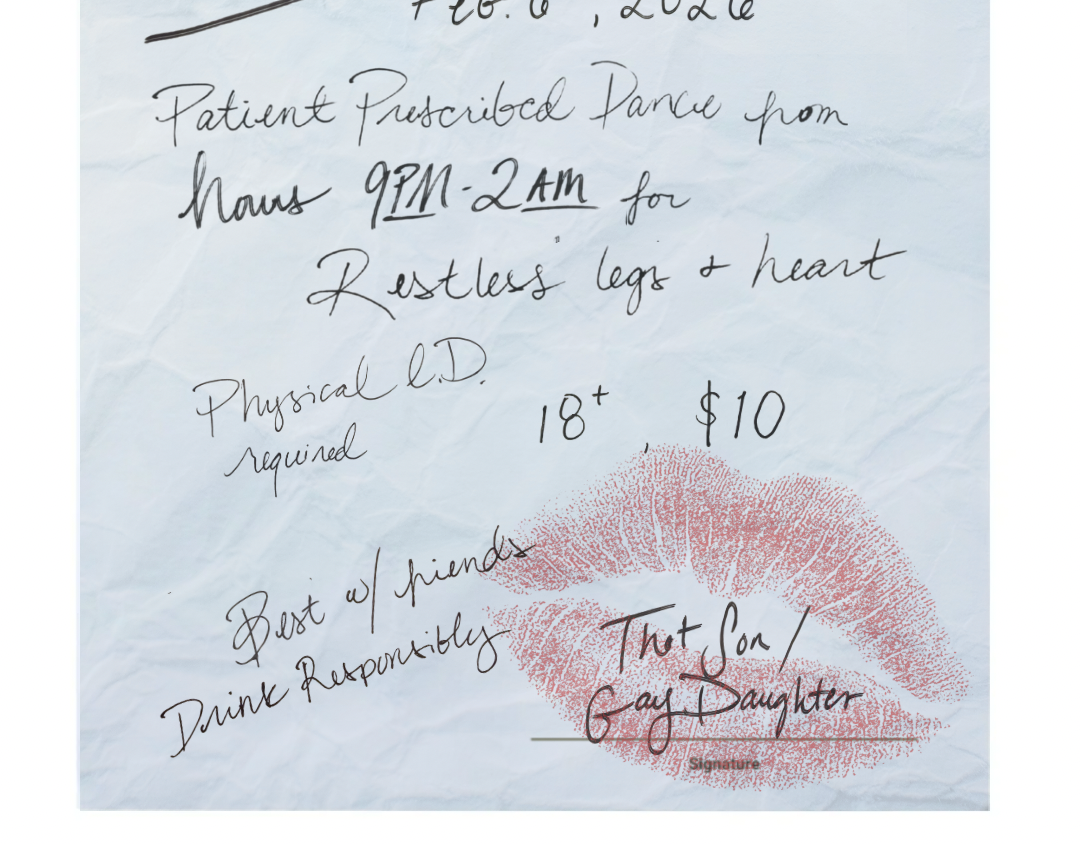 Feb. 6, 2026
Patient Prescribed Dance from
hours 9PM-2AM for
Restless legs + heart
Physical I.D.
required
18+ $10
Best w/ friends
Drink Responsibly
Thot Son/
Gay Daughter
Signature